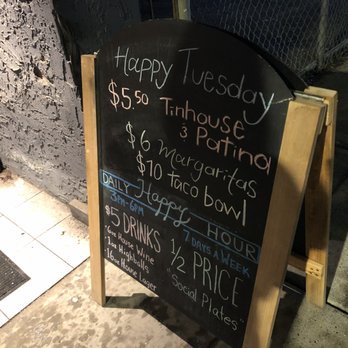 Happy Tuesday
$5.50 Tinhouse
& Patina
$6 Margaritas
$10 Taco bowl
DAILY Happy HOUR
3PM-6PM 7 DAYS A WEEK
$5 DRINKS
- 6oz House Wine
- 1oz Highballs
- 16oz House Lager
1/2 PRICE
"Social Plates"